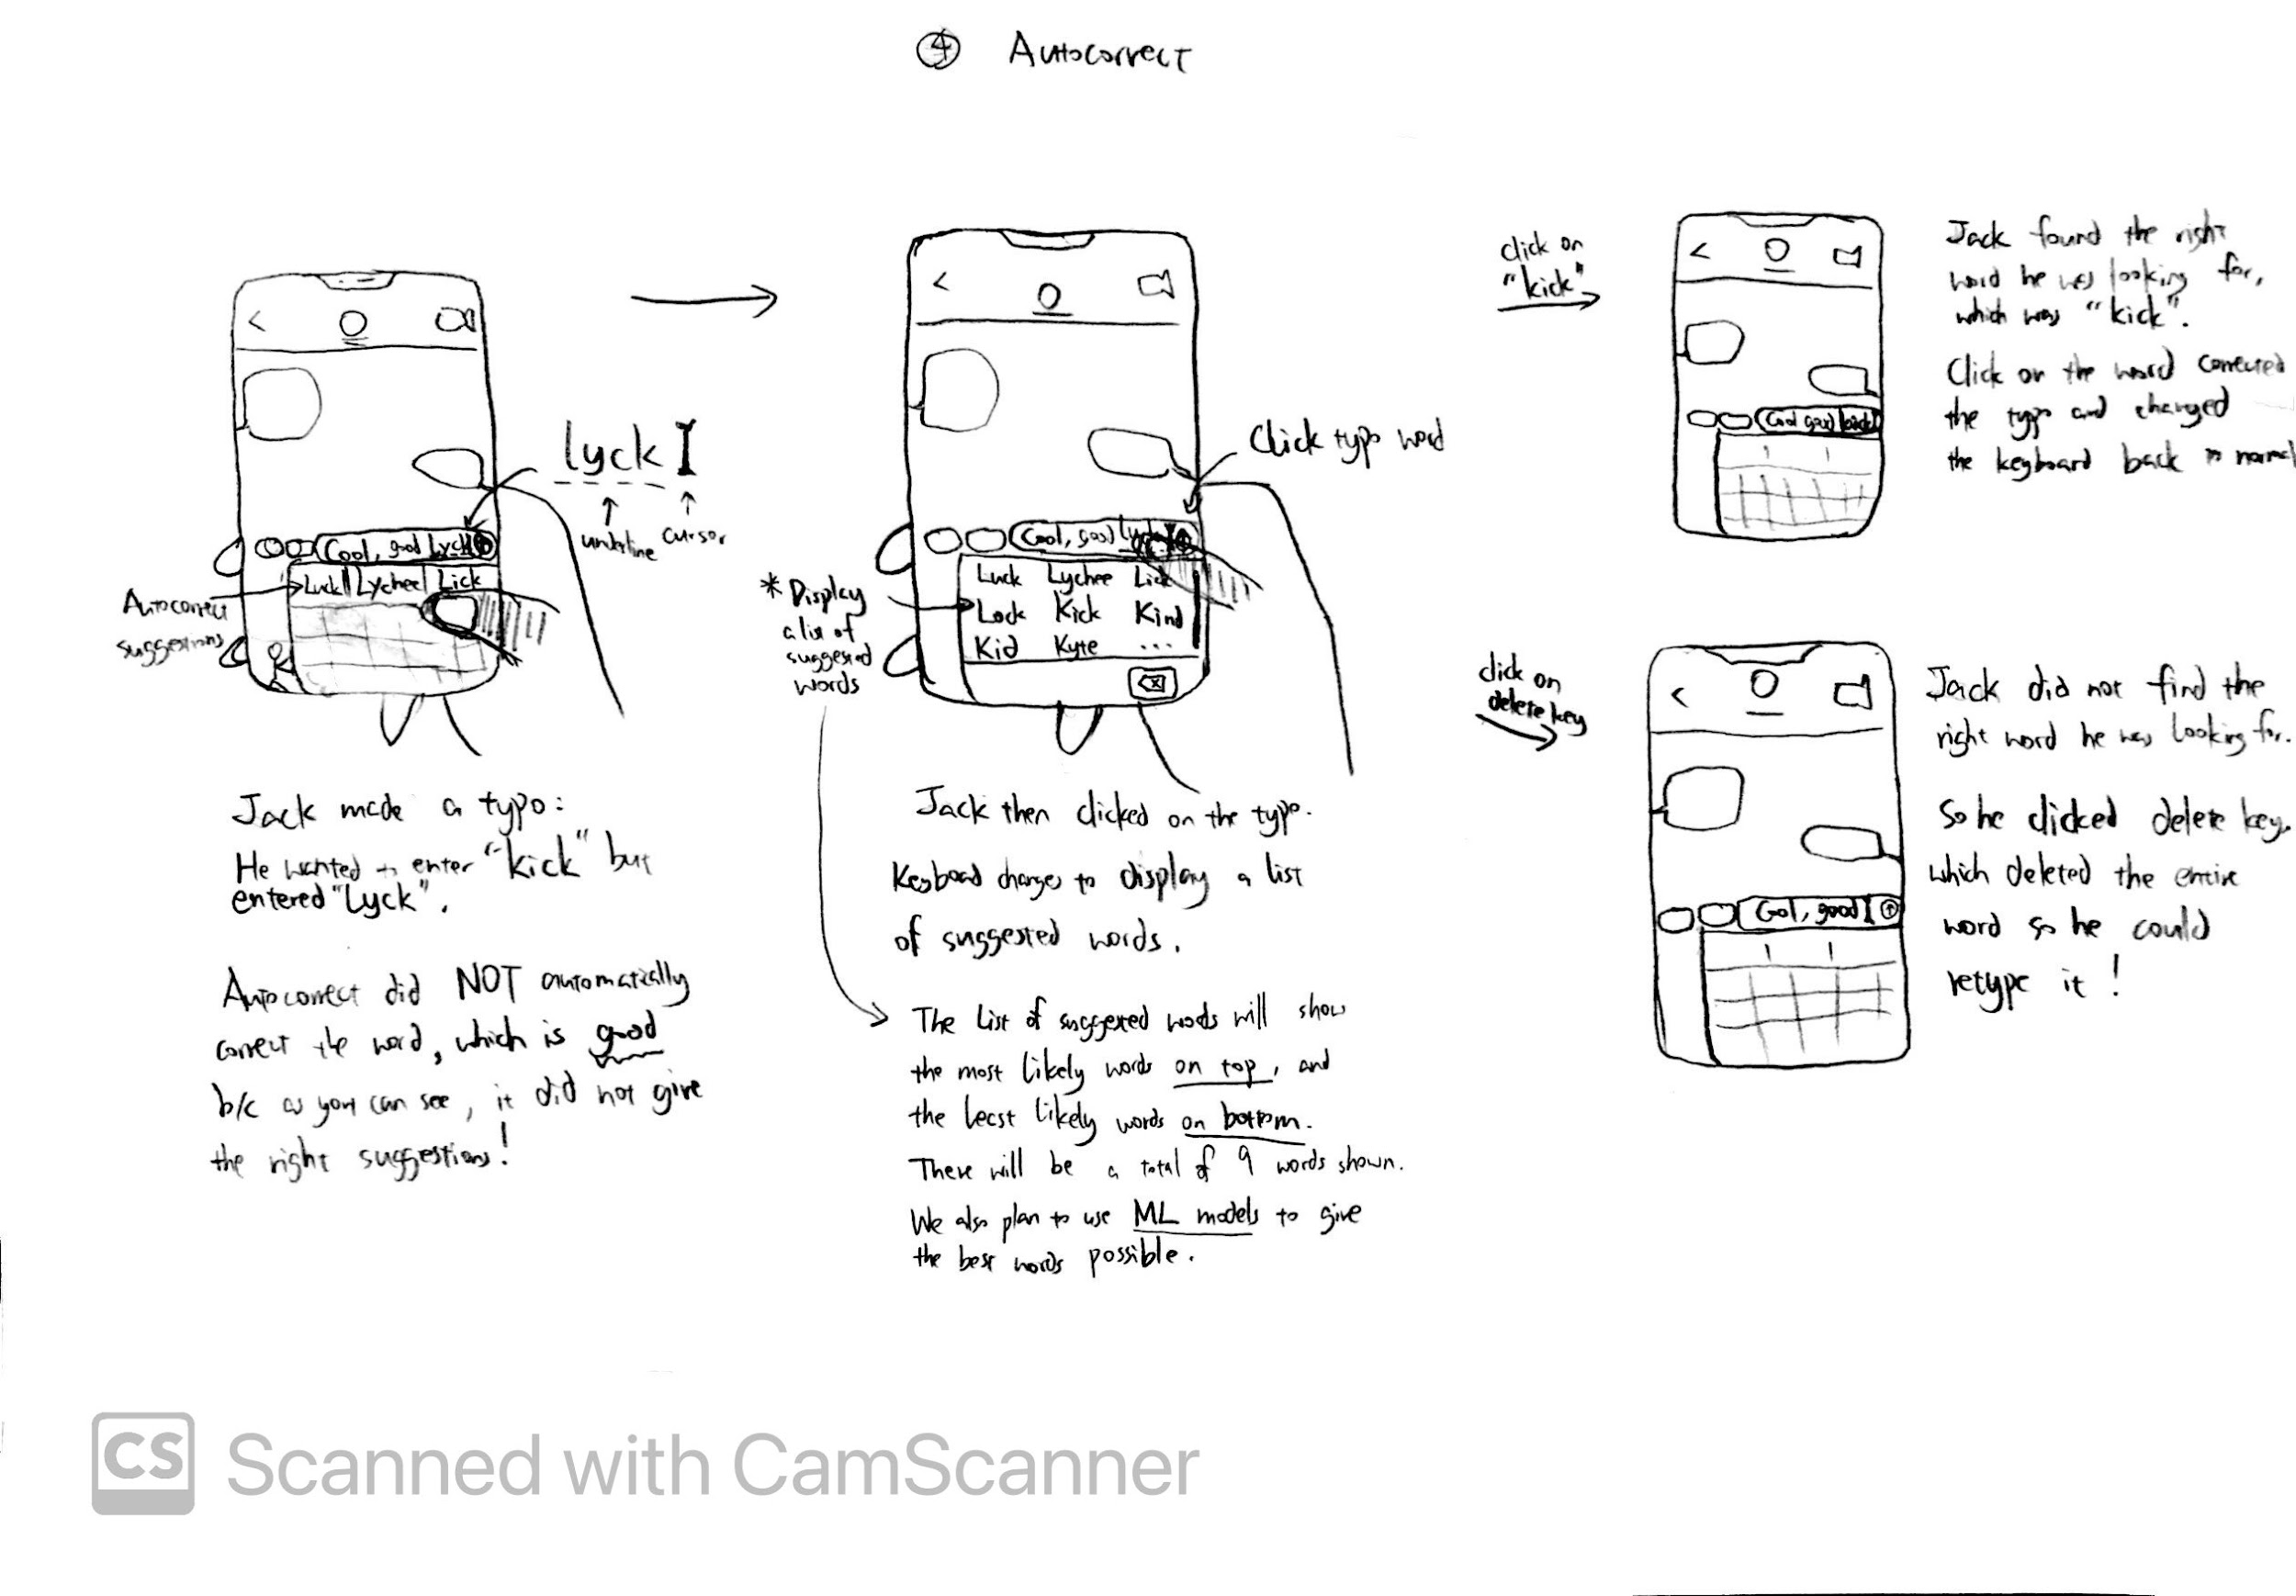 ④ Autocorrect
lyck
underline
cursor
Cool, good Lyck
Luck Lychee Lick
Autocorrect
suggestions
Jack made a typo:
He wanted to enter "kick" but
entered "Lyck".
Autocorrect did NOT automatically
correct the word, which is good
b/c as you can see, it did not give
the right suggestions!
Click typo word
Cool, good Lyck
Luck Lychee Lick
Lock Kick Kind
Kid Kyte ...
* Display
a list of
suggested
words
Jack then clicked on the typo.
Keyboard changes to display a list
of suggested words.
The list of suggested words will show
the most likely words on top, and
the least likely words on bottom.
There will be a total of 9 words shown.
We also plan to use ML models to give
the best words possible.
click on
"kick"
Cool good kick
Jack found the right
word he was looking for,
which was "kick".
Click on the word corrected
the typo and changed
the keyboard back to normal
click on
delete key
Cool, good
Jack did not find the
right word he was looking for.
So he clicked delete key,
which deleted the entire
word so he could
retype it!
CS Scanned with CamScanner